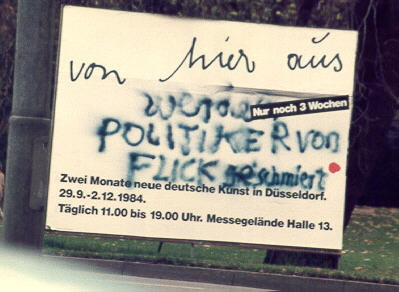 von hier aus
Nur noch 3 Wochen
werden
POLITIKER von
FLICK geschmiert
Zwei Monate neue deutsche Kunst in Düsseldorf.
29.9.-2.12.1984.
Täglich 11.00 bis 19.00 Uhr. Messegelände Halle 13.